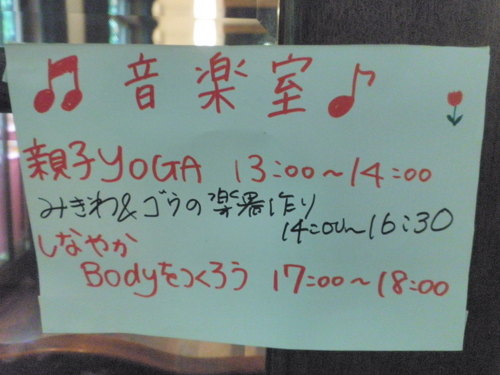 ♫ 音楽室 ♪
親子YOGA 13:00~14:00
みきわ&ゴウの楽器作り
14:00~16:30
しなやか
Bodyをつくろう 17:00~18:00